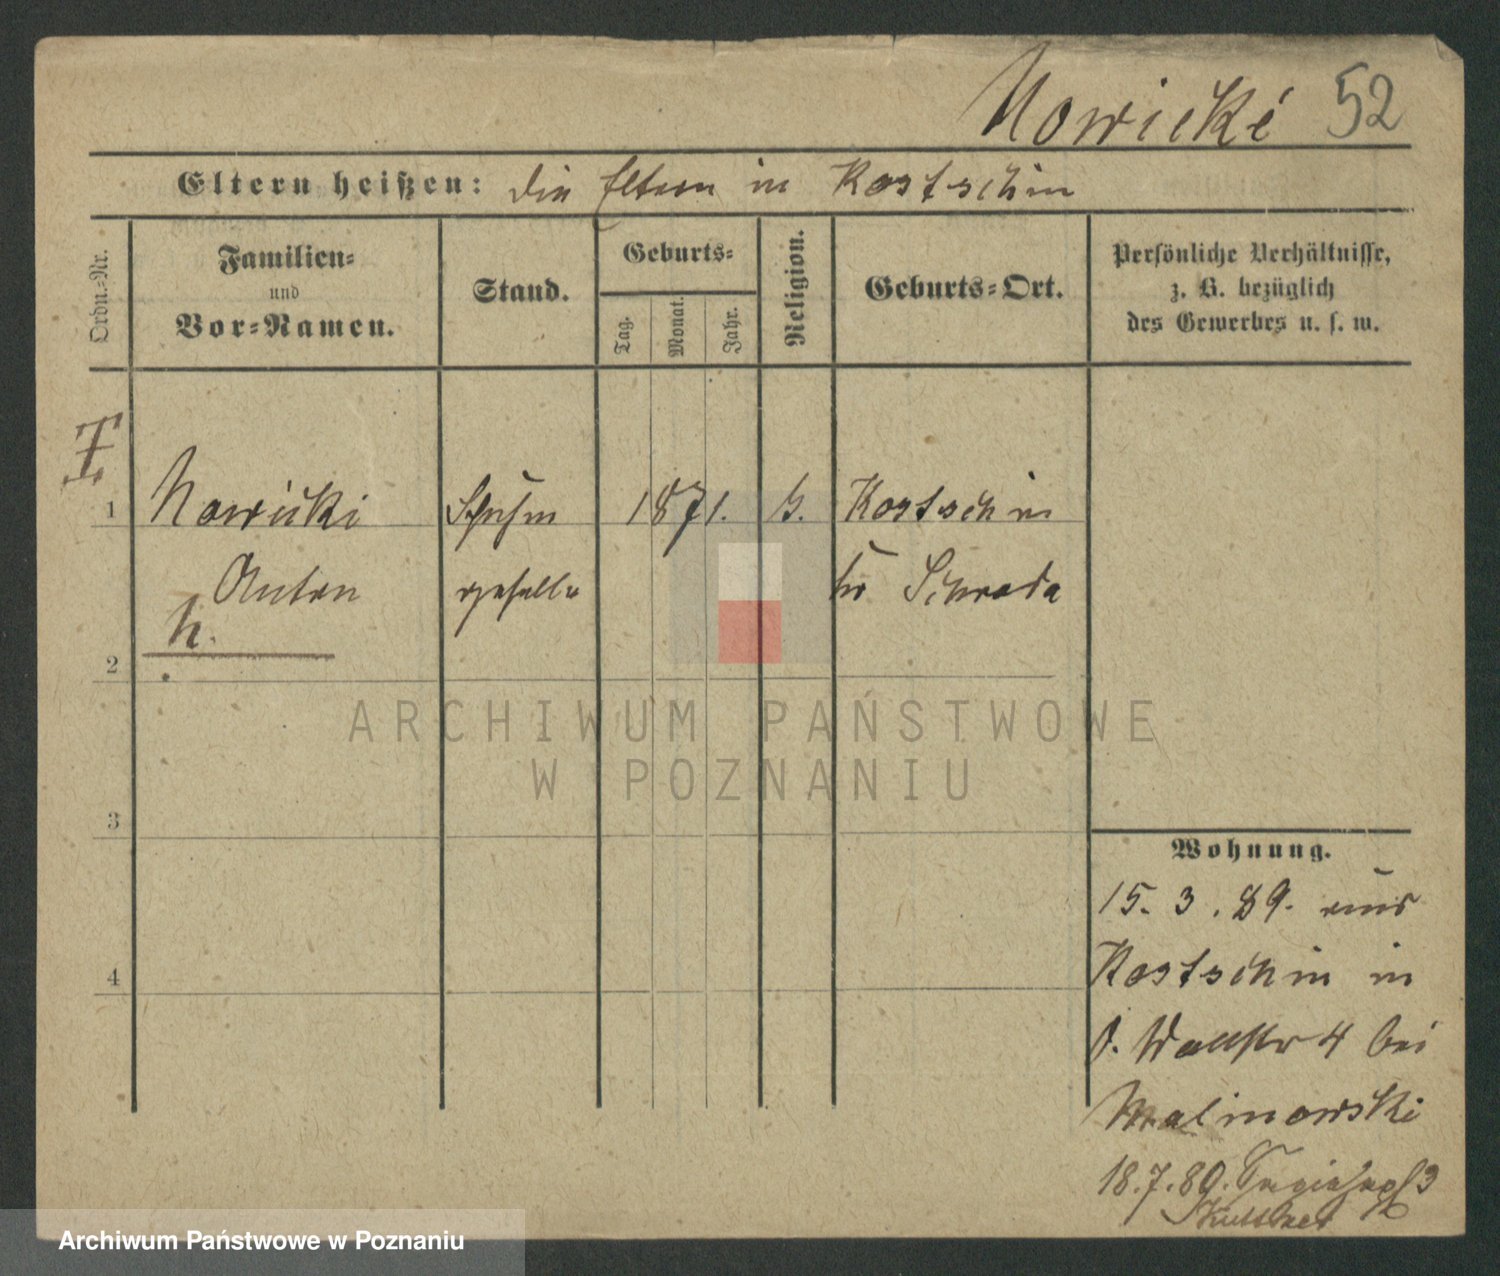 Nowicki 52
Eltern heißen: die Eltern in Kostschin
Ordn.-Nr.
Familien-
und
Vor-Namen.
Stand.
Geburts-
Tag.
Monat.
Jahr.
Religion.
Geburts-Ort.
Persönliche Verhältnisse,
z. B. bezüglich
des Gewerbes u. s. w.
1 Nowicki Schuhm 1871. Kostschin
Anton geselle Schroda
2
3
4
Wohnung.
15. 3. 89. aus
Kostschin in
Wallstr 4 bei
Malinowski
18. 7. 89. 3
ARCHIWUM PAŃSTWOWE
W POZNANIU
Archiwum Państwowe w Poznaniu